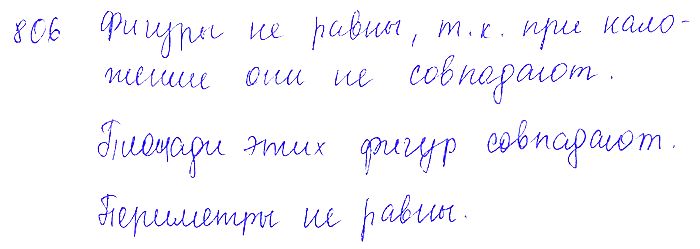 806 Фигуры не равны, т.к. при нало-
жение они не совпадают.
Площади этих фигур совпадают.
Периметры не равны.